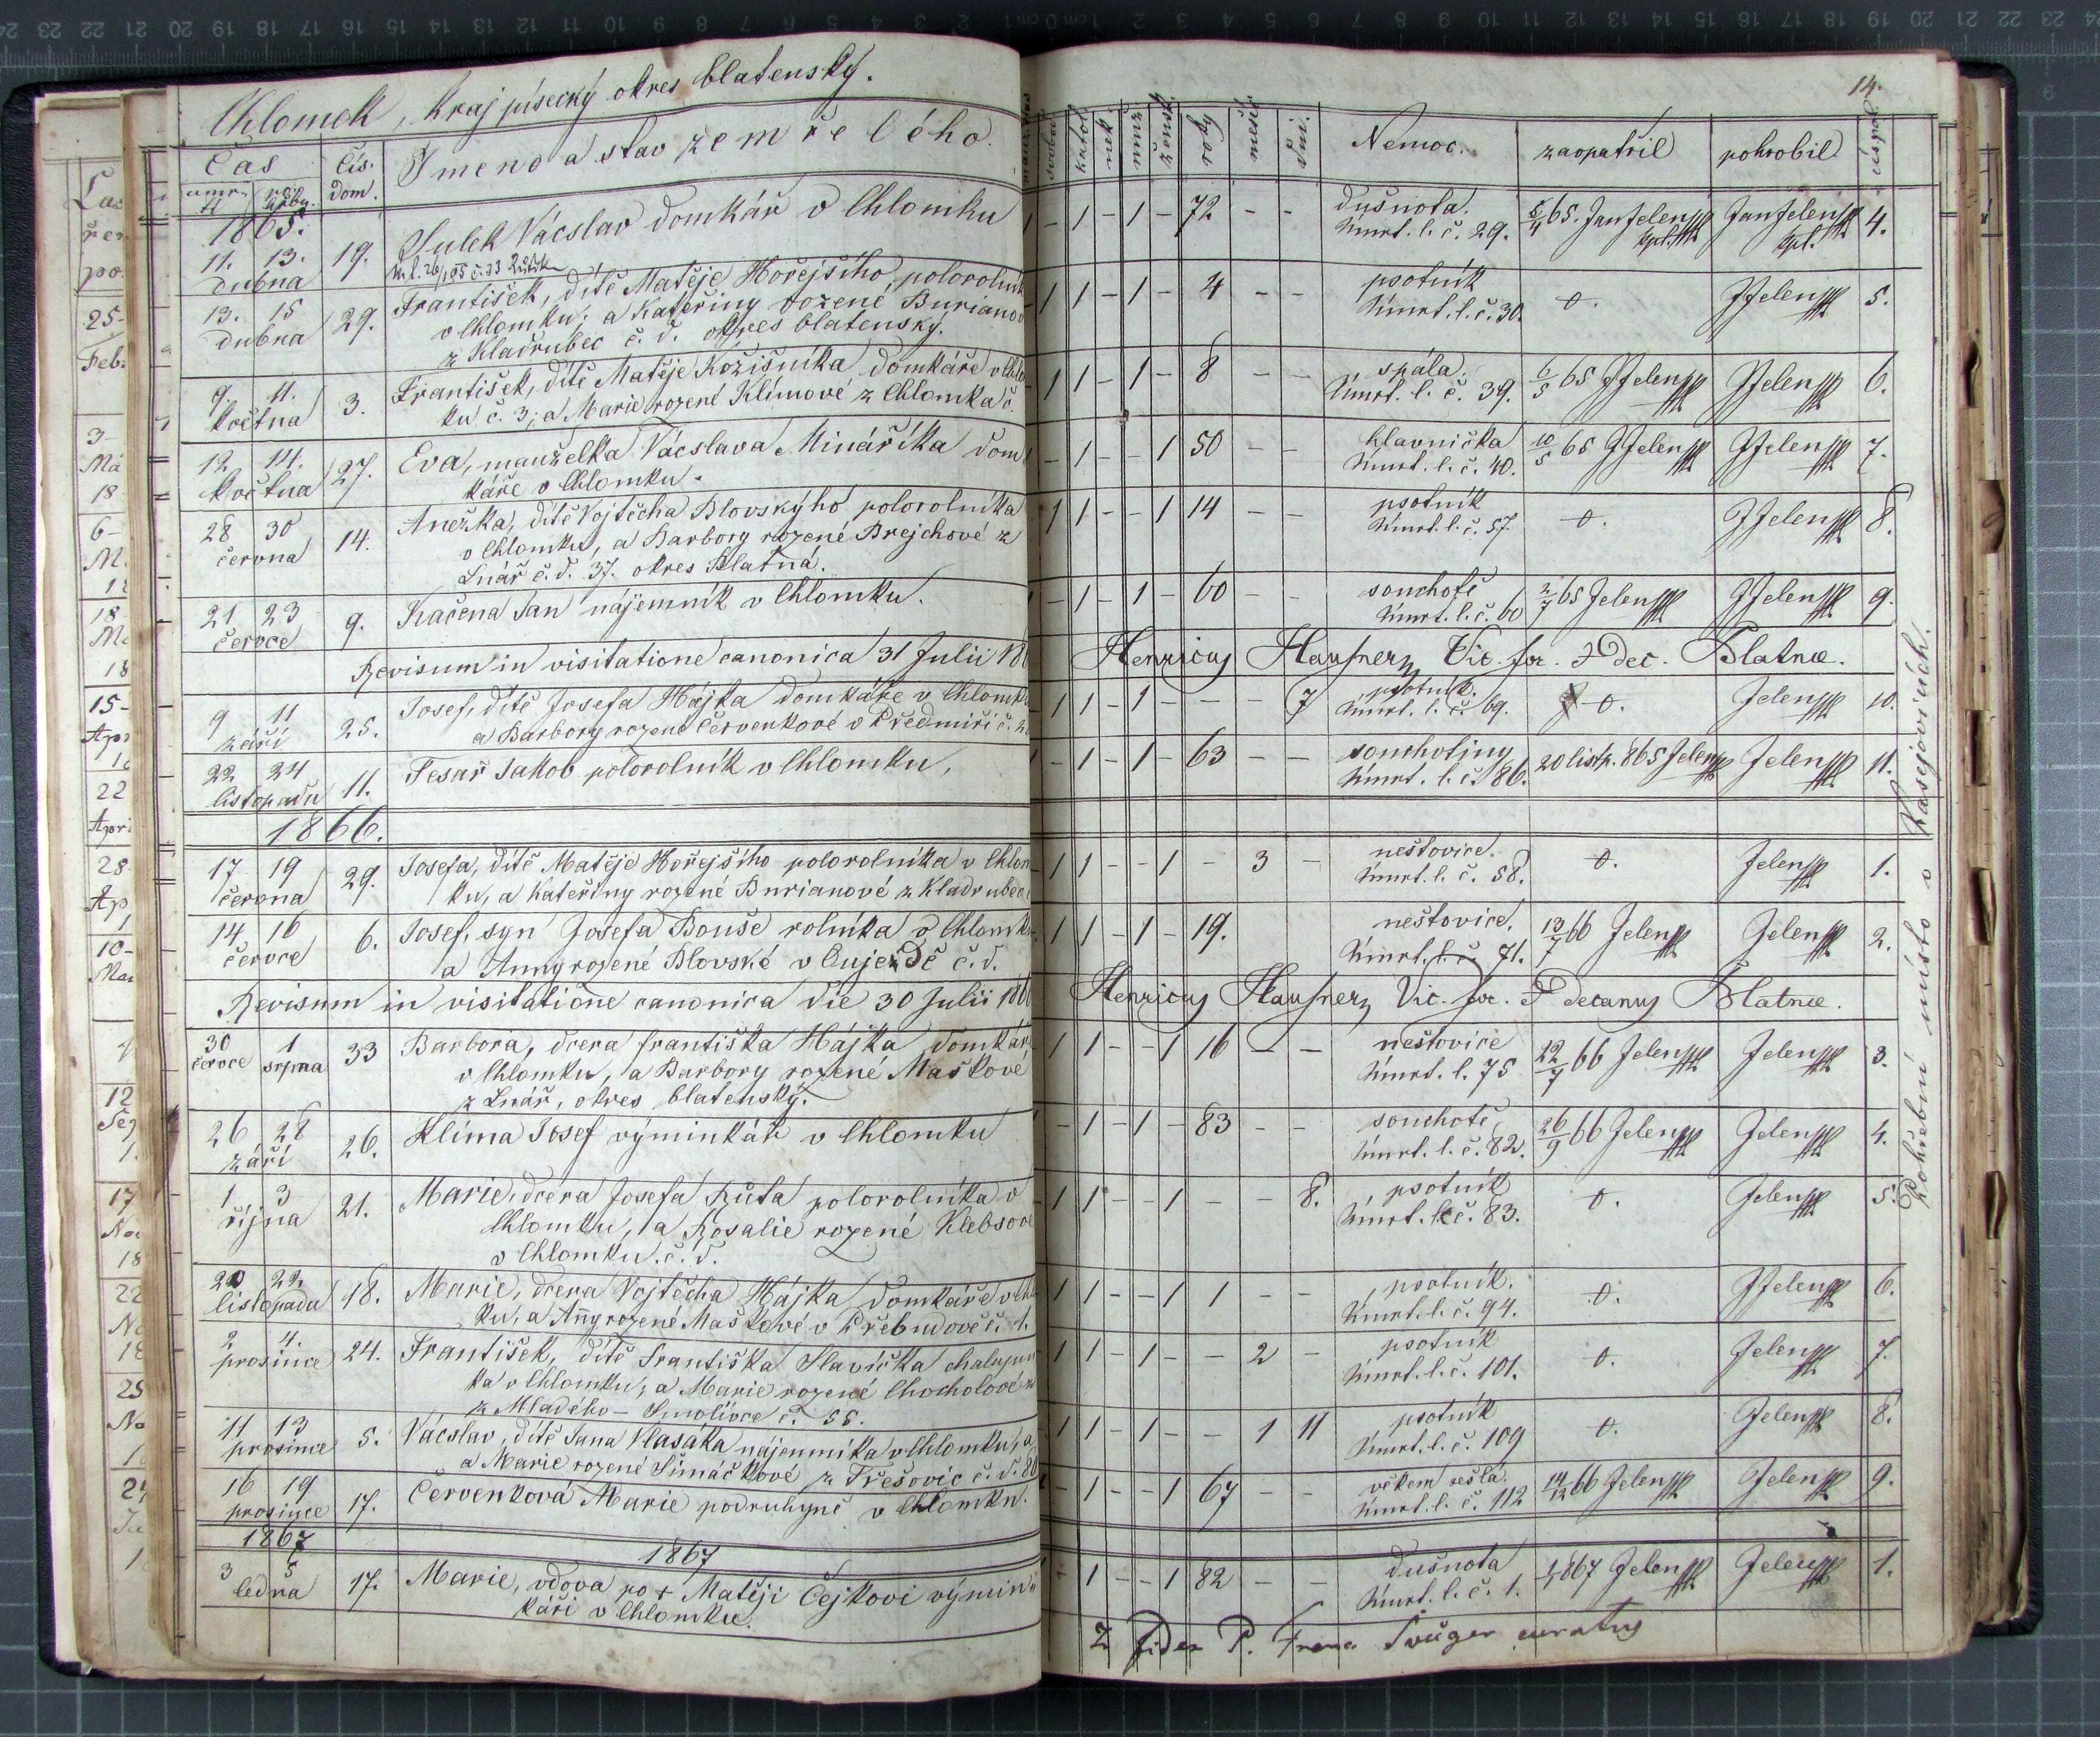 Chlomek, Kraj písecký okres blatenský.
14.
Čas
Čís. dom.
Jmeno a stav zemřelého.
svobod
katol
nek
muž
žensk
roky
měsíc
dni.
Nemoc.
zaopatřil
pohrobil
1865.
11. 13. dubna 19. Sulek Vácslav domkář v Chlomku
1 - 1 - 72 - - dušnota. 5/4 65. Jan Jelen Jan Jelen 4.
Úmrt. l. č. 29. kpl. kpl.
13. 15 dubna 29. František, dítě Matěje Hořejšího, polorolník
v Chlomku; a Kateřiny rozené Burianov
z Kladrubec č. d. okres blatenský.
1 1 - 1 - 4 - - psotník 0. JJelen 5.
Úmrt. l. č. 30.
9. 11. května 3. František, dítě Matěje Kožišníka domkáře v Chlo
ku č. 3; a Marie rozené Klímové z Chlomka č.
1 1 - 1 - 8 - - spála. 6/5 65 JJelen JJelen 6.
Úmrt. l. č. 39.
12. 14. května 27. Eva, manželka Vácslava Mináříka dom
káře v Chlomku.
- 1 - - 1 50 - - hlavnička 10/5 65 JJelen JJelen 7.
Úmrt. l. č. 40.
28 30 června 14. Anežka, dítě Vojtěcha Blovskýho polorolníka
v Chlomku, a Barbory rozené Brejchové z
Lnář č. d. 37. okres Blatná.
1 1 - - 1 14 - - psotník 0. JJelen 8.
Úmrt. l. č. 57.
21 23 července 9. Kačena Jan nájemník v Chlomku.
- 1 - 1 - 60 - - souchotě 2/7 65 Jelen JJelen 9.
Úmrt. l. č. 60
Revisum in visitatione canonica 31 Julii 186 Henricus Vic. for. & Dec. Blatnæ.
9 11 září 25. Josef, dítě Josefa Hájka domkáře v Chlomk
a Barbory rozené Červenkové v Předmíři č. 2
1 1 - 1 - - - 7 psotník. 0. Jelen 10.
Úmrt. l. č. 69.
22 24 listopadu 11. Tesař Jakob polorolník v Chlomku,
- 1 - 1 - 63 - - souchotiny 20 listp. 865 Jelen Jelen 11.
Úmrt. l. č. 86.
1866.
17 19 června 29. Josefa, dítě Matěje Hořejšího polorolníka v Chlom
ku, a Kateřiny rozené Burianové z Kladrubec
1 1 - - 1 - 3 - neštovice. 0. Jelen 1.
Úmrt. l. č. 58.
14 16 července 6. Josef, syn Josefa Bouše rolníka v Chlomk
a Anny rozené Blovské v Oujezdě č. d.
1 1 - 1 - 19. neštovice. 13/7 66 Jelen Jelen 2.
Úmrt. l. č. 71.
Revisum in visitatione canonica die 30 Julii 186 Henricus Vic. for. & decanus Blatnæ.
30 července 1 srpna 33 Barbora, dcera Františka Hájka domkář
v Chlomku, a Barbory rozené Maškové
z Lnář, okres blatenský.
1 1 - - 1 16 - - neštovice 22/7 66 Jelen Jelen 3.
Úmrt. l. 75
26 28 září 26. Klíma Josef výminkář v Chlomku
- 1 - 1 - 83 - - souchotě 26/9 66 Jelen Jelen 4.
Úmrt. l. č. 82.
1 3 října 21. Marie, dcera Josefa Růta polorolníka v
Chlomku, a Rosalie rozené Klebsové
v Chlomku. č. d.
1 1 - - 1 - - 8. psotník 0. Jelen 5.
Úmrt. l. č. 83.
20 22 listopadu 18. Marie, dcera Vojtěcha Hájka domkáře v Chl
ku, a Anny rozené Maškové v Třebudově č. 1.
1 1 - - 1 1 - - psotník. 0. JJelen 6.
Úmrt. l. č. 94.
2 4. prosince 24. František, dítě Františka Slavíčka chalupní
ka v Chlomku, a Marie rozené Chocholové
z Mladého-Smolivce č. 55.
1 1 - 1 - - 2 - psotník 0. Jelen 7.
Úmrt. l. č. 101.
11 13 prosince 5. Vácslav, dítě Jana Vlasáka nájemníka v Chlomku, a
a Marie rozené Šimáčkové z Třešovic č. d. 80
1 - 1 - - 1 11 psotník 0. Jelen 8.
Úmrt. l. č. 109
16 19 prosince 17. Červenková Marie podruhyně v Chlomku.
- 1 - - 1 67 - - věkem sešlá. 14/12 66 Jelen Jelen 9.
Úmrt. l. č. 112
1867 1867
3 5 ledna 17. Marie, vdova po + Matěji Čejkovi výmin
káři v Chlomku.
1 - - 1 82 - - dušnota 1/1 867 Jelen Jelen 1.
Úmrt. l. č. 1.
Fides P. Franc curatus
Pohřební místo v Kasejovicích.